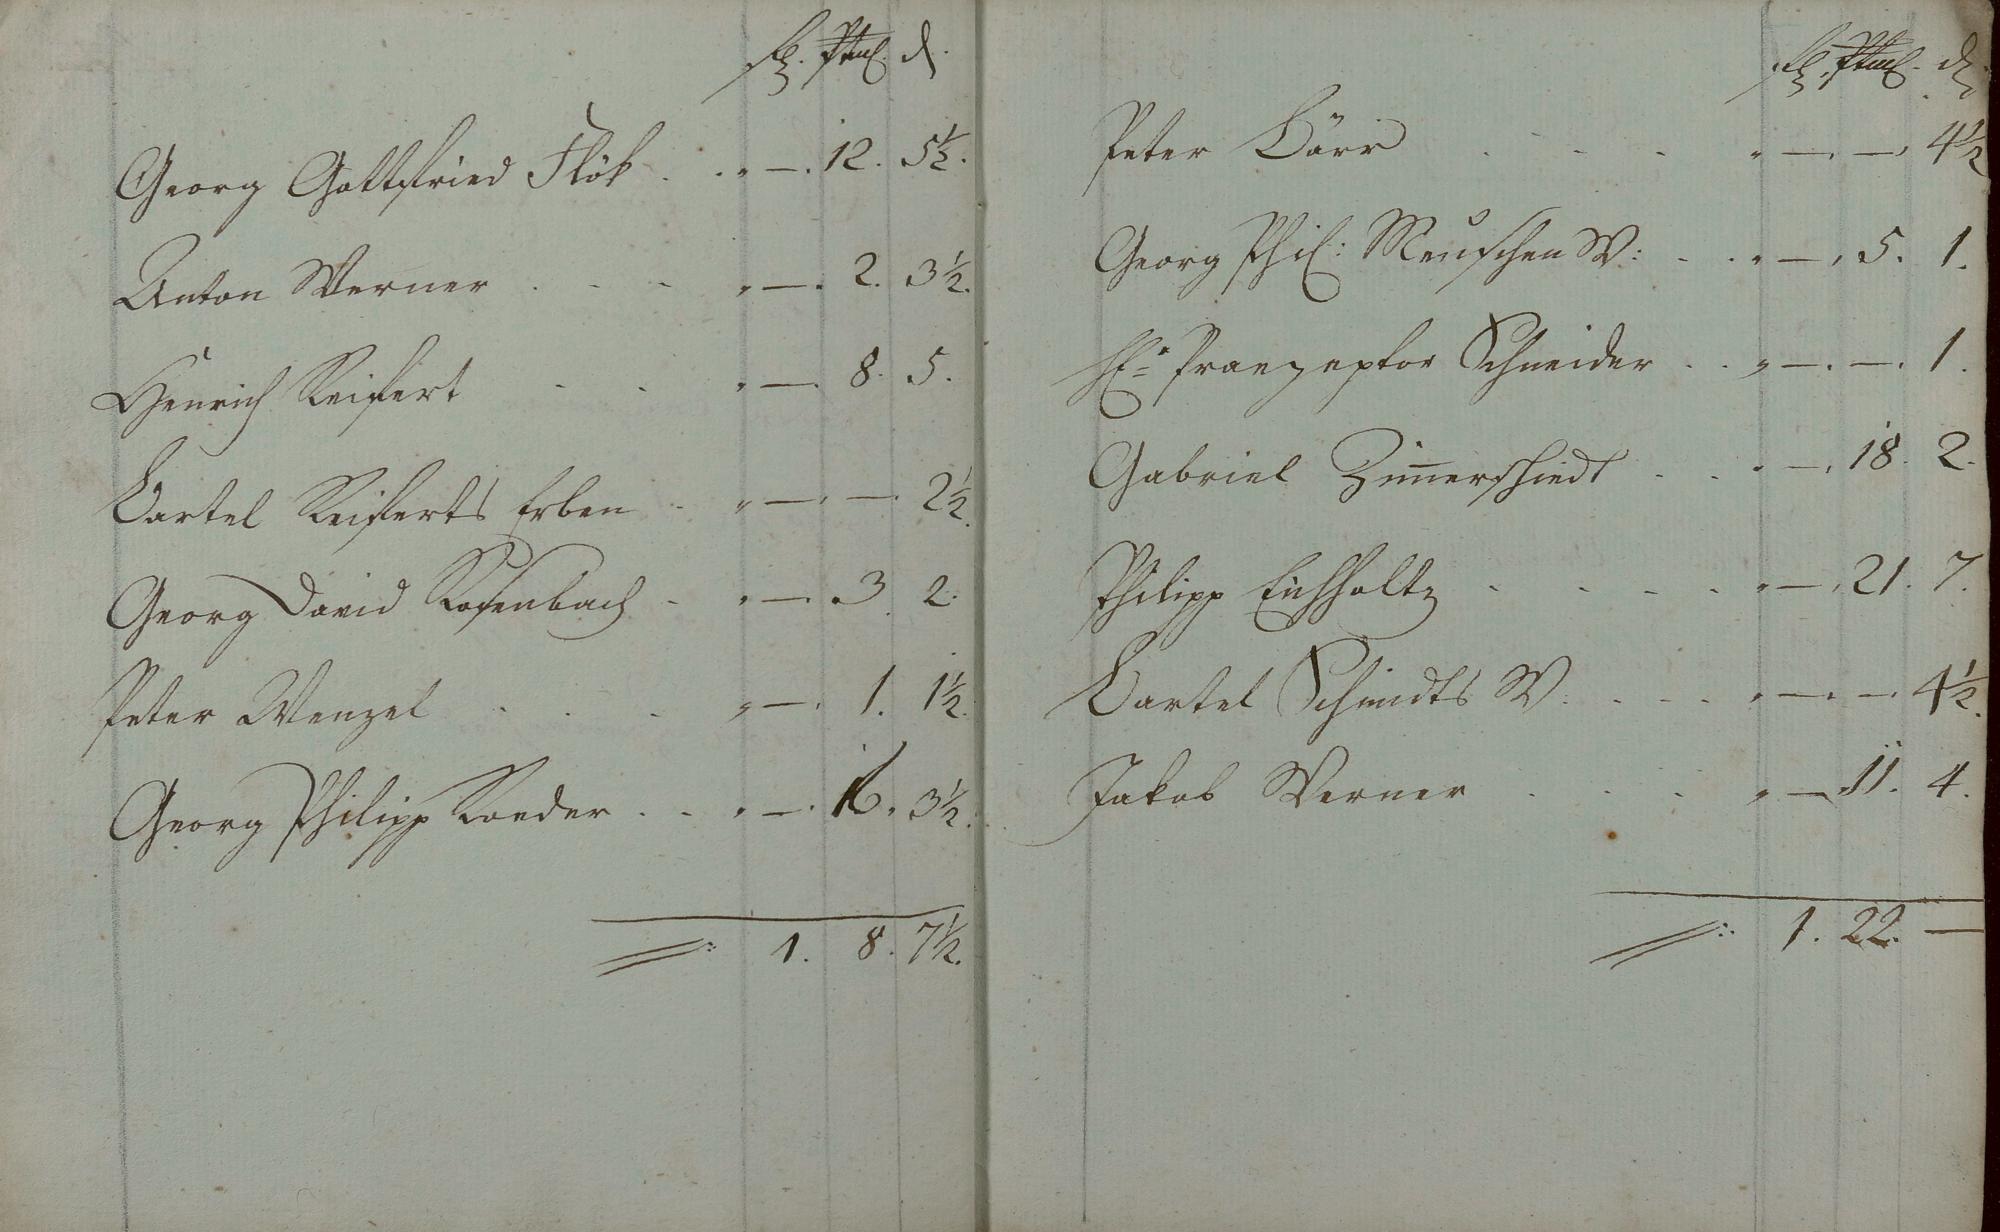 fl. Stuf. d.
Georg Gottfried Flök . . . " — . 12. 5½.
Anton Werner . . . " — . 2. 3½.
Henrich Reifert . . " — . 8. 5.
Bartel Reiferts Erben . " — . — . 2½.
Georg David Rosenbach . " — . 3. 2.
Peter Wenzel . . . " — . 1. 1½.
Georg Philipp Roeder . . " — . 16. 3½.
1. 8. 7½.
fl. d.
Peter Dörr . . . " — . — . 4½
Georg Phil: Reuschen W: . . " — . 5. 1.
H: Praezeptor Schneider . . " — . — . 1.
Gabriel Zim̄erschiedt . . " — . 18. 2.
Philipp Eichholtz . . . . " — . 21. 7.
Bartel Schmidts W. . . . " — . — . 4½.
Jakob Werner . . . " — 11. 4.
1. 22. —